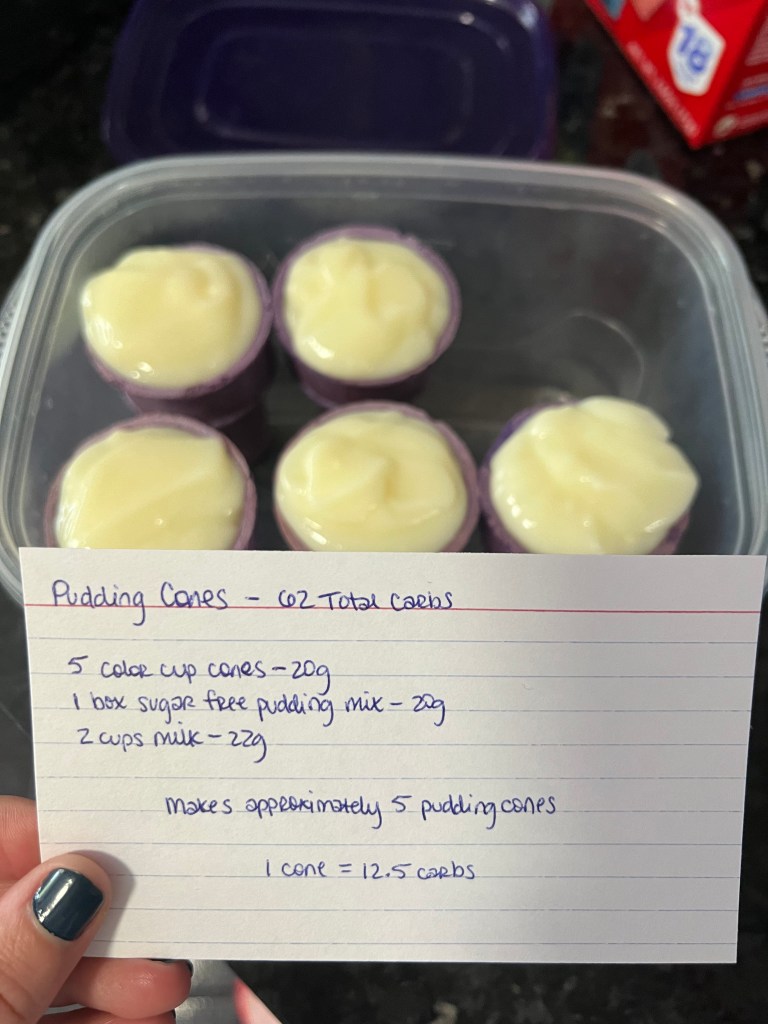 18
Pudding Cones - 62 Total Carbs
5 color cup cones - 20g
1 box sugar free pudding mix - 20g
2 cups milk - 22g
makes approximately 5 pudding cones
1 cone = 12.5 carbs